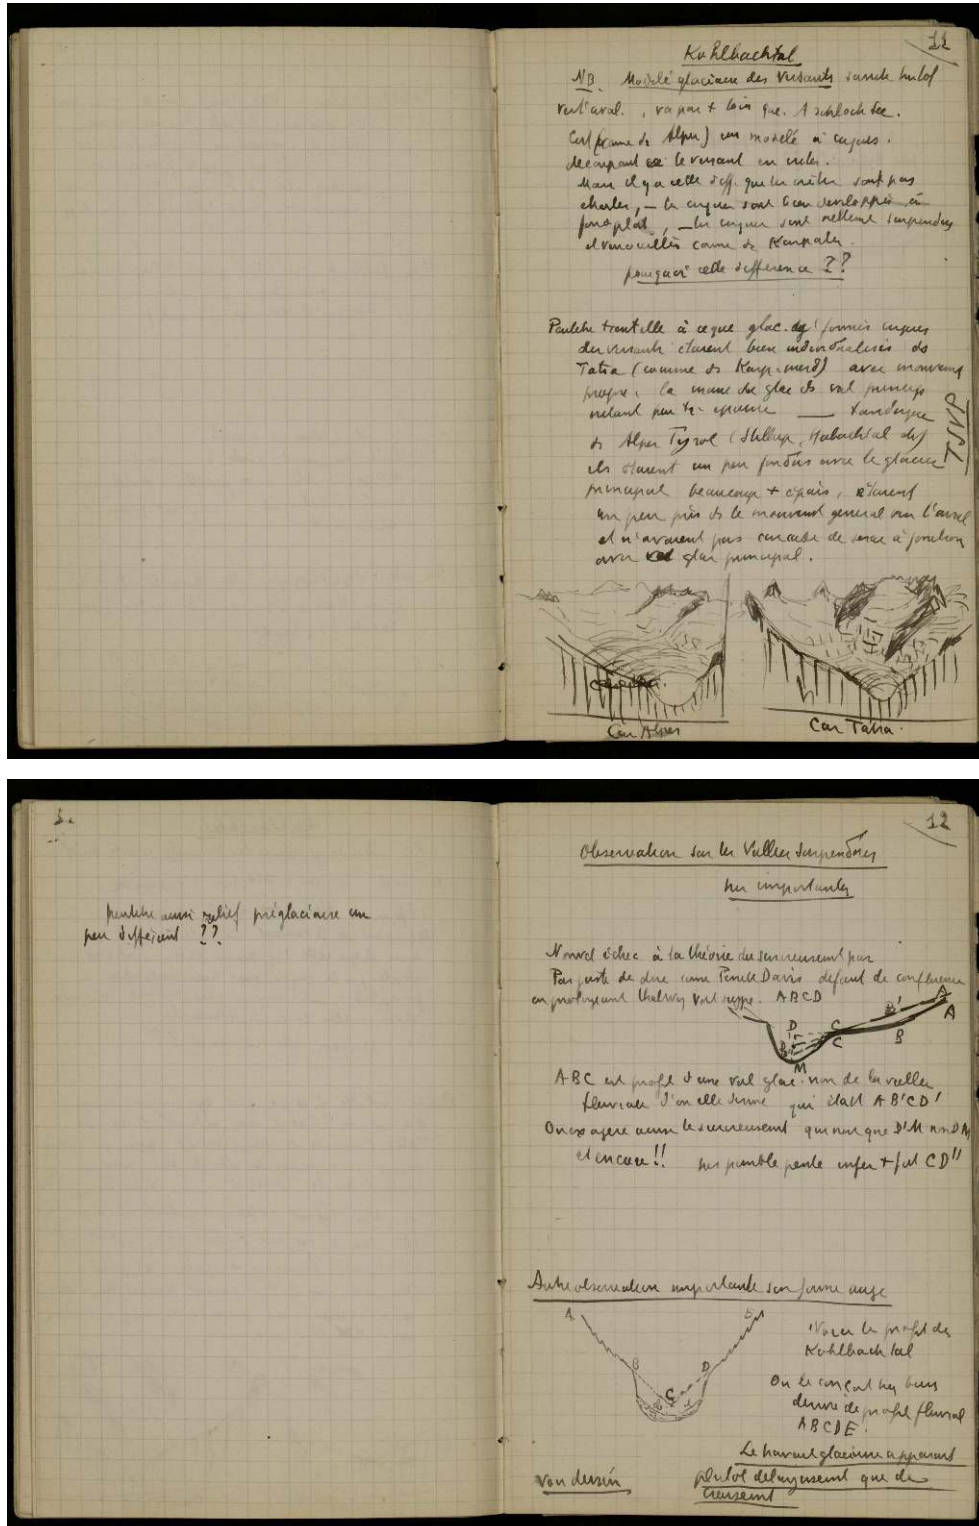 11
Kohlbachtal
NB. Modelé glaciaire des versants
vers l'aval. , va pas + loin que.
C'est (comme ds Alpes) un modelé à cirques.
découpant le versant en
Mais il y a cette diff. que les crêtes sont pas
, — les cirques sont bien développés à
fond plat, — les cirques sont nettement suspendus
et verrouillés comme ds Karpates.
pourquoi cette différence ??
Peutêtre tient elle à ce que glac. formés cirques
des versants étaient bien individualisés ds
Tatra (comme ds Karp. merid) avec mouvement
propre, la masse du glac ds val princip
étant peu tr. épaisse — tandis que
ds Alpes Tyrol (Stillup, Habachtal
ils étaient un peu fondus avec le glacier
principal beaucoup + épais, étaient
un peu pris ds le mouvement general vers l'aval
et n'avaient pas cascade de serac à jonction
avec glac principal.
TSVP
Cas Alpes
Cas Tatra.
12
Observation sur les Vallées Suspendues
très importantes
peutêtre aussi relief préglaciaire un
peu différent ??
Nouvel échec à la théorie du surcreusement par
Pas juste de dire comme Penck Davis défaut de confluence
en prolongeant thalweg Vall suspe. ABCD
A
B'
A
D
C
C
B
M
ABC est profil d'une val glac. non de la vallée
fluviale d'où elle dérive qui était AB'CD'
On exagère aussi le surcreusement qui n'est que D'M non DM
et encore!! très possible pente infer + fort CD"
Autre observation importante sur forme auge
A
E
B
D
C
Voici le profil de
Kohlbachtal
On le conçoit très bien
dérivé de profil fluvial
ABCDE.
Le travail glaciaire apparait
plutot élargissement que de
creusement
voir dessin